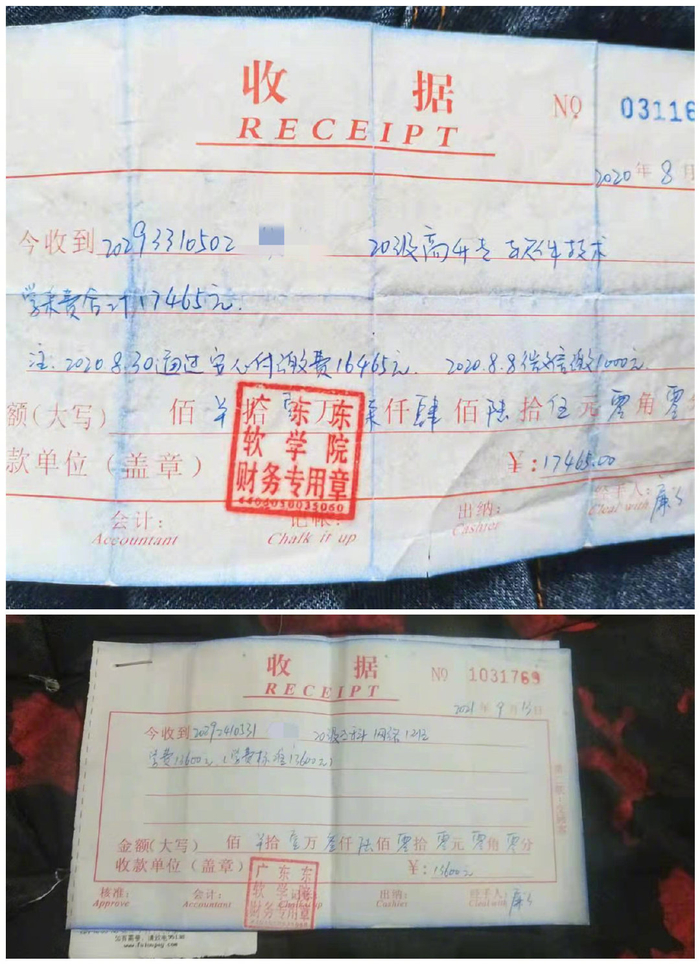 收 据
RECEIPT
№ 03116
2020年8月
今收到20293310502 20级高升专 软件技术
学杂费合计17465元.
注: 2020.8.30通过云闪付缴费16465元. 2020.8.8微信缴1000元.
额(大写) 佰 拾 万 柒仟肆佰陆拾伍元零角零分
款单位(盖章) ¥:17465.00
广东东
软学院
财务专用章
会计: 记帐: 出纳: 经手人:
Accountant Chalk it up Cashier Cleal with
收 据
RECEIPT
№ 1031769
2021年9月 日
今收到20292410331 20级 网络
学费13600元(学费标准13600元)
金额(大写) 佰 拾壹万叁仟陆佰零拾零元零角零分
收款单位(盖章) ¥:13600元
广东东
软学院
财务专用章
核准: 会计: 出纳: 经手人:
Approve Accountant Cashier